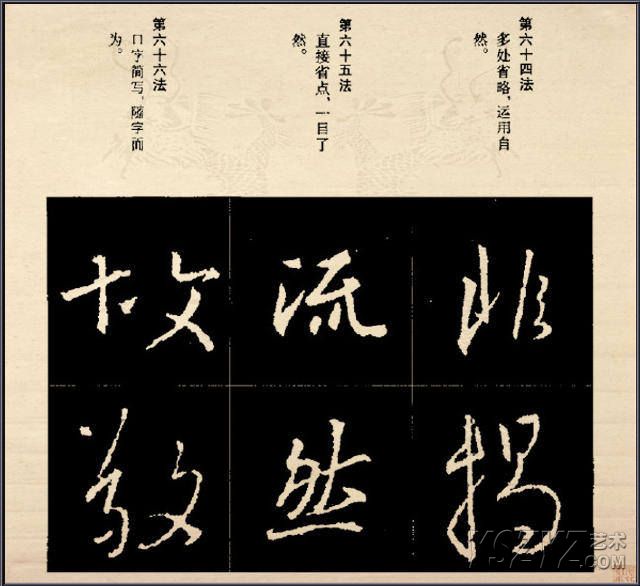 第六十四法
多处省略,运用自
然。
第六十五法
直接省点,一目了
然。
第六十六法
口字简写,随字而
为。
揭
流
然
故
敬
艺术
.com